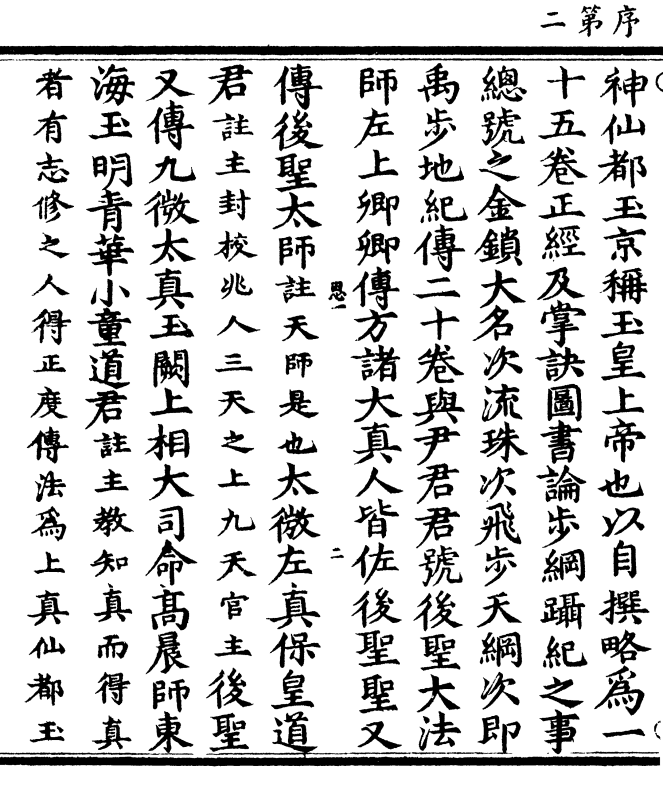 序第二
神仙都玉京稱玉皇上帝也以自撰略爲一
十五卷正經及掌訣圖書論步綱躡紀之事
總號之金鎖大名次流珠次飛步天綱次即
禹步地紀傳二十卷與尹君君號後聖大法
師左上卿卿傳方諸大真人皆佐後聖聖又
恩一
二
傳後聖太師註天師是也太微左真保皇道
君註主封校兆人三天之上九天官主後聖
又傳九微太真玉闕上相大司命高晨師東
海玉明青華小童道君註主教知真而得真
者有志修之人得正度傳法爲上真仙都玉